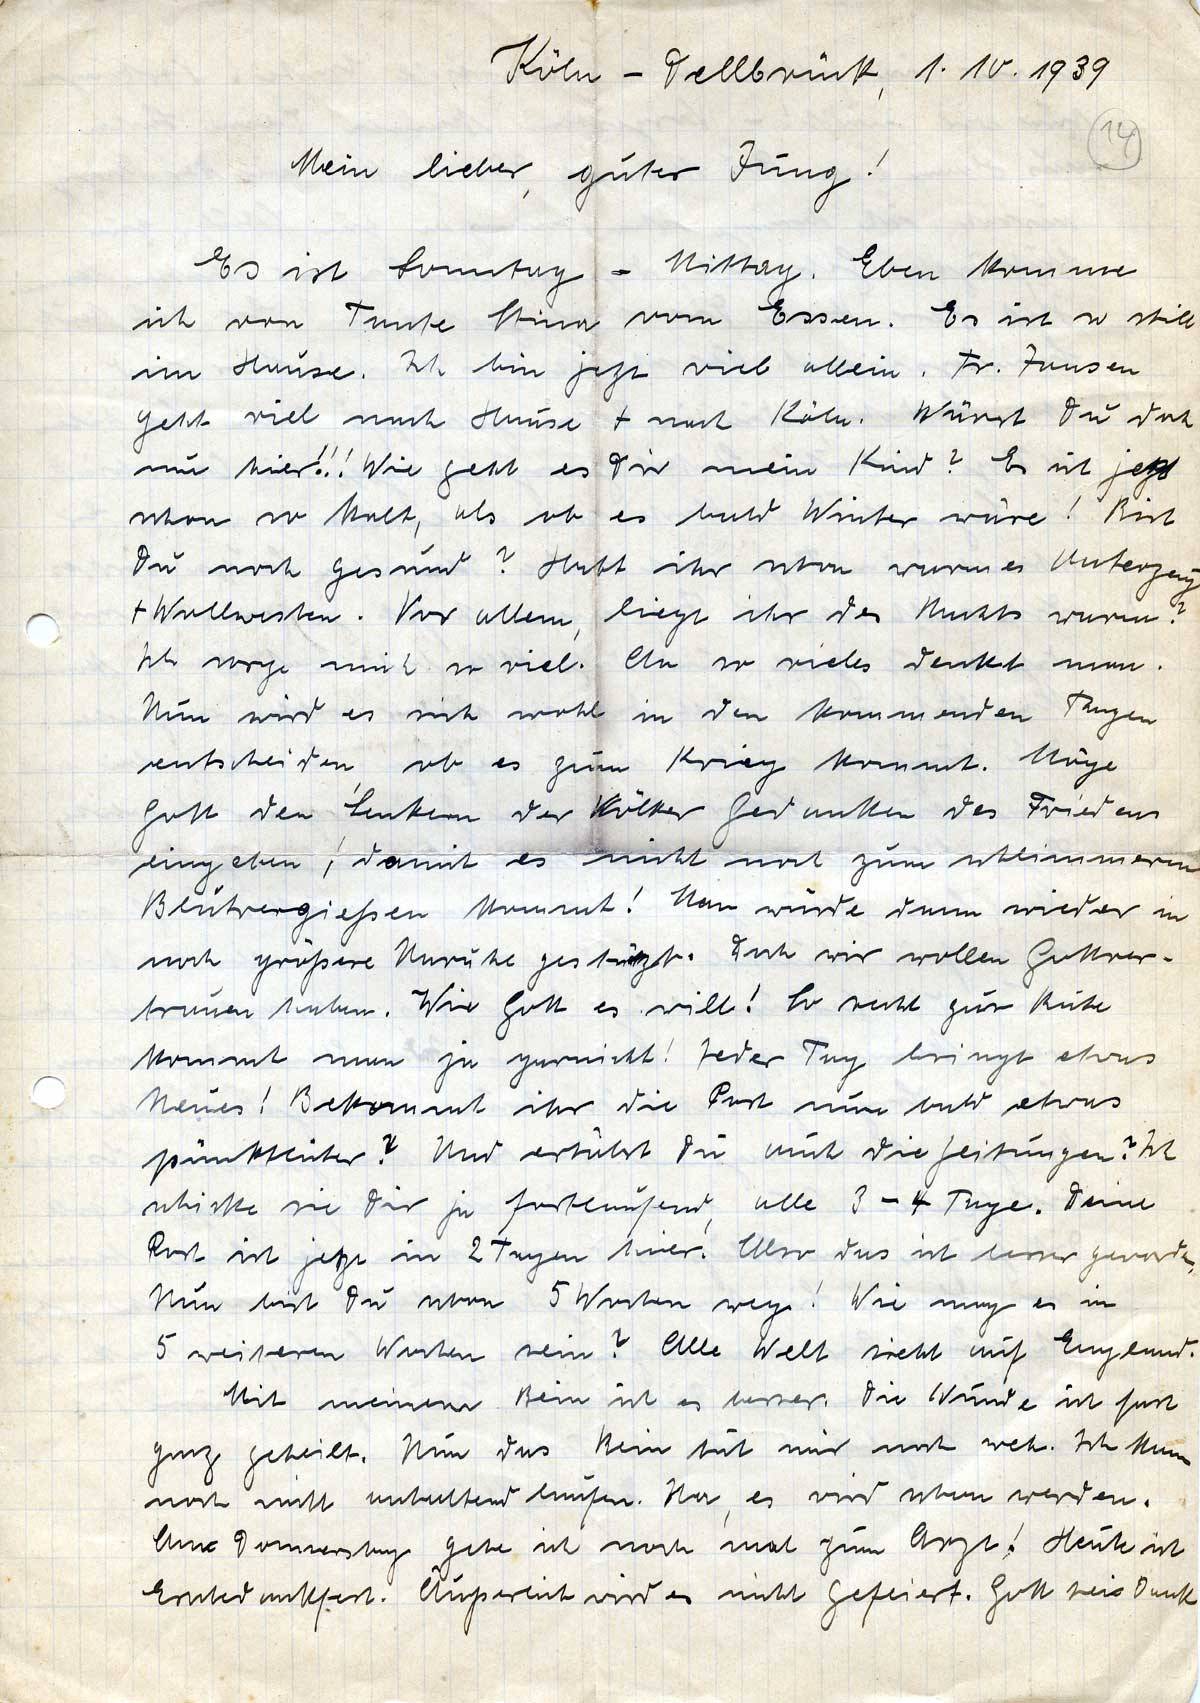 Köln - Dellbrück, 1. 10. 1939
14
Mein lieber, guter Jung!
Es ist Sonntag - Mittag. Eben komme
ich von Tante Stina vom Essen. Es ist so still
im Hause. Ich bin jetzt viel allein. Fr. Jansen
geht viel nach Hause + nach Köln. Wärst Du doch
nur hier!!! Wie geht es Dir mein Kind? Es ist jetzt
schon so kalt, als ob es bald Winter wäre! Bist
Du noch gesund? Habt ihr schon warmes Unterzeug
+ Wollwesten. Vor allem, liegt ihr des Nachts warm?
Ich sorge mich so viel. An so vieles denkt man.
Nun wird es sich wohl in den kommenden Tagen
entscheiden, ob es zum Krieg kommt. Möge
Gott den Lenkern der Völker Gedanken des Friedens
eingeben, damit es nicht noch zum schlimmeren
Blutvergießen kommt! Man würde dann wieder in
noch größere Unruhe gestürzt. Doch wir wollen Gottver-
trauen haben. Wie Gott es will! So recht zur Ruhe
kommt man ja garnicht! Jeder Tag bringt etwas
Neues! Bekommt ihr die Post nun bald etwas
pünktlicher? Und erhälst Du auch die Zeitungen? Ich
schicke sie Dir ja fortlaufend, alle 3-4 Tage. Deine
Post ist jetzt in 2 Tagen hier! Also das ist besser geworden.
Nun bist Du schon 5 Wochen weg! Wie mag es in
5 weiteren Wochen sein? Alle Welt sieht auf England.
Mit meinem Bein ist es besser. Die Wunde ist fast
ganz geheilt. Nur das Bein tut mir noch weh. Ich kann
noch nicht anhaltend laufen. Na, es wird schon werden.
Am Donnerstag gehe ich noch mal zum Arzt! Heute ist
Erntedankfest. Äußerlich wird es nicht gefeiert. Gott sei Dank